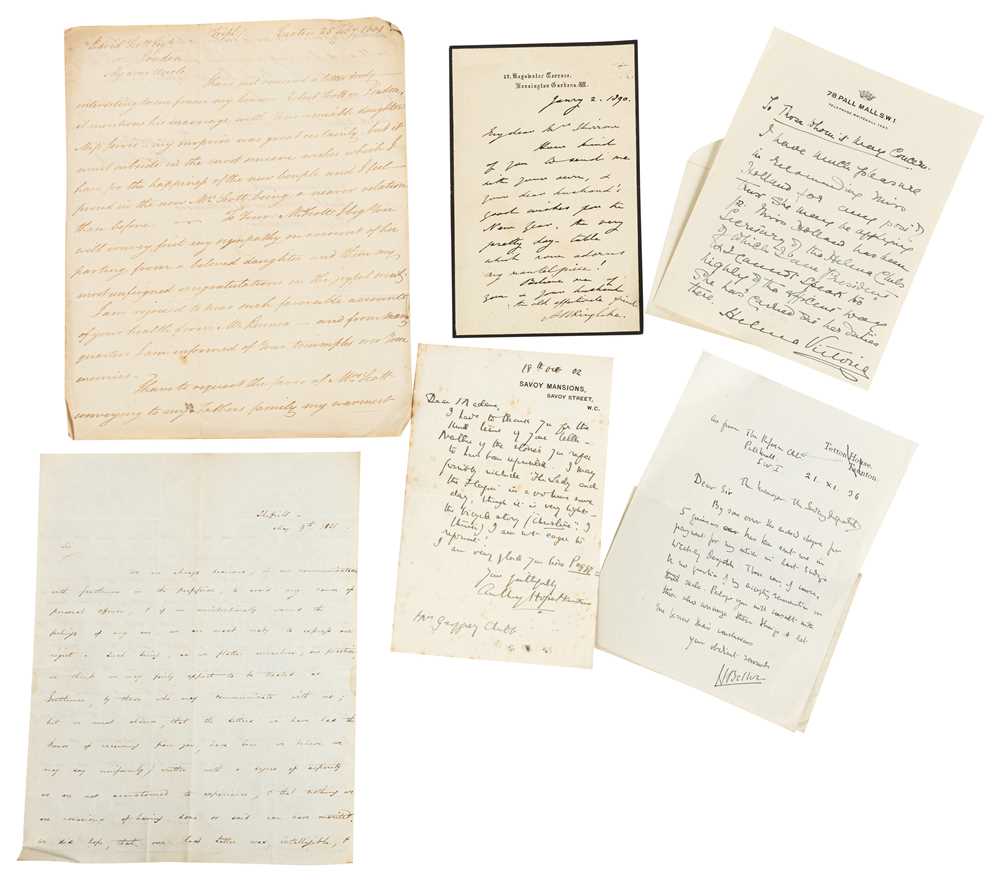 David Scott Esqr (Copy) Canton 25 Feby 1801
London
My dear Uncle
Have just received a letter truly
interesting to me from my
it mentions his marriage with your amiable daughter
Miss my surprise was great certainly, but it
most outside in the most sincere wishes which I
have for the happiness of the new couple and I feel
proud in the now Mrs Scott being a nearer relation
than before.
To Your & Mrs Scott I beg You
will convey first my sympathy on account of her
parting from a beloved daughter and then my
most unfeigned congratulations on the joyful
I am rejoiced to hear such favorable accounts
of your health from Mr and from many
quarters I am informed of Your triumphs over Your
enemies.
Have to request the favor of Mrs Scott
conveying to my Fathers family my warmest
27, Bayswater Terrace,
Kensington Gardens. W.
Janry 2. 1890.
My dear Mrs
How kind
of you to send me
with your own, &
your dear husband's
good wishes for the
New Year, the very
pretty day-table
which now adorns
my mantel piece!
Believe me, of
you & your husband
the old affectionate friend
78 PALL MALL S W 1
TELEPHONE WHITEHALL
To Those whom it may Concern.
I have much pleasure
in recommending Miss
Holland for any post
that she may be applying
for. Miss Holland has been
Secretary of the Helena Club
of which I am President
and I cannot speak too
highly of the efficient way
She has carried out her duties
there.
Helena Victoria
18th Oct 02
SAVOY MANSIONS,
SAVOY STREET,
W.C.
Dear Madam,
I have to thank you for the
kind terms of your letter.
Neither of the stories you refer
to has been reprinted. I may
possibly include "The Lady and
the Flagon" in a volume some
day, though it is very light -
the bicycle story ( I
think) I am not eager to
reprint.
I am very glad you like
Yours faithfully
Anthony Hope Hawkins
Mrs Chubb
as from The Reform Club
Pall Mall
S.W.1
Tetton House,
Taunton.
21. XI. 36
The Manager The Sunday
Dear Sir
By some error the enclosed cheque for
5 guineas has been sent me in
payment for my article in last Sunday's
Dispatch. There can, of course,
be no question of my accepting remuneration on
that scale. Perhaps you will consult with
those who arrange these things & let
me know their conclusions
Your obedient servant
H Belloc
May 9th 1821
Sir
We are always desirous, in our communications
with gentlemen in the profession, to avoid any cause of
personal offence, & if we unintentionally wound the
feelings of any one we are most ready to express our
regret — Such being, as we flatter ourselves, our practice
we think we may fairly expect to be treated as
Gentlemen, by those who may communicate with us;
but we must observe, that the letters we have had the
honor of receiving from you, have been we believe we
may say uniformly, written with a degree of asperity
we are not accustomed to experience, & that nothing we
are conscious of having done or said can have merited,
we did hope, that our last letter was intelligible, &